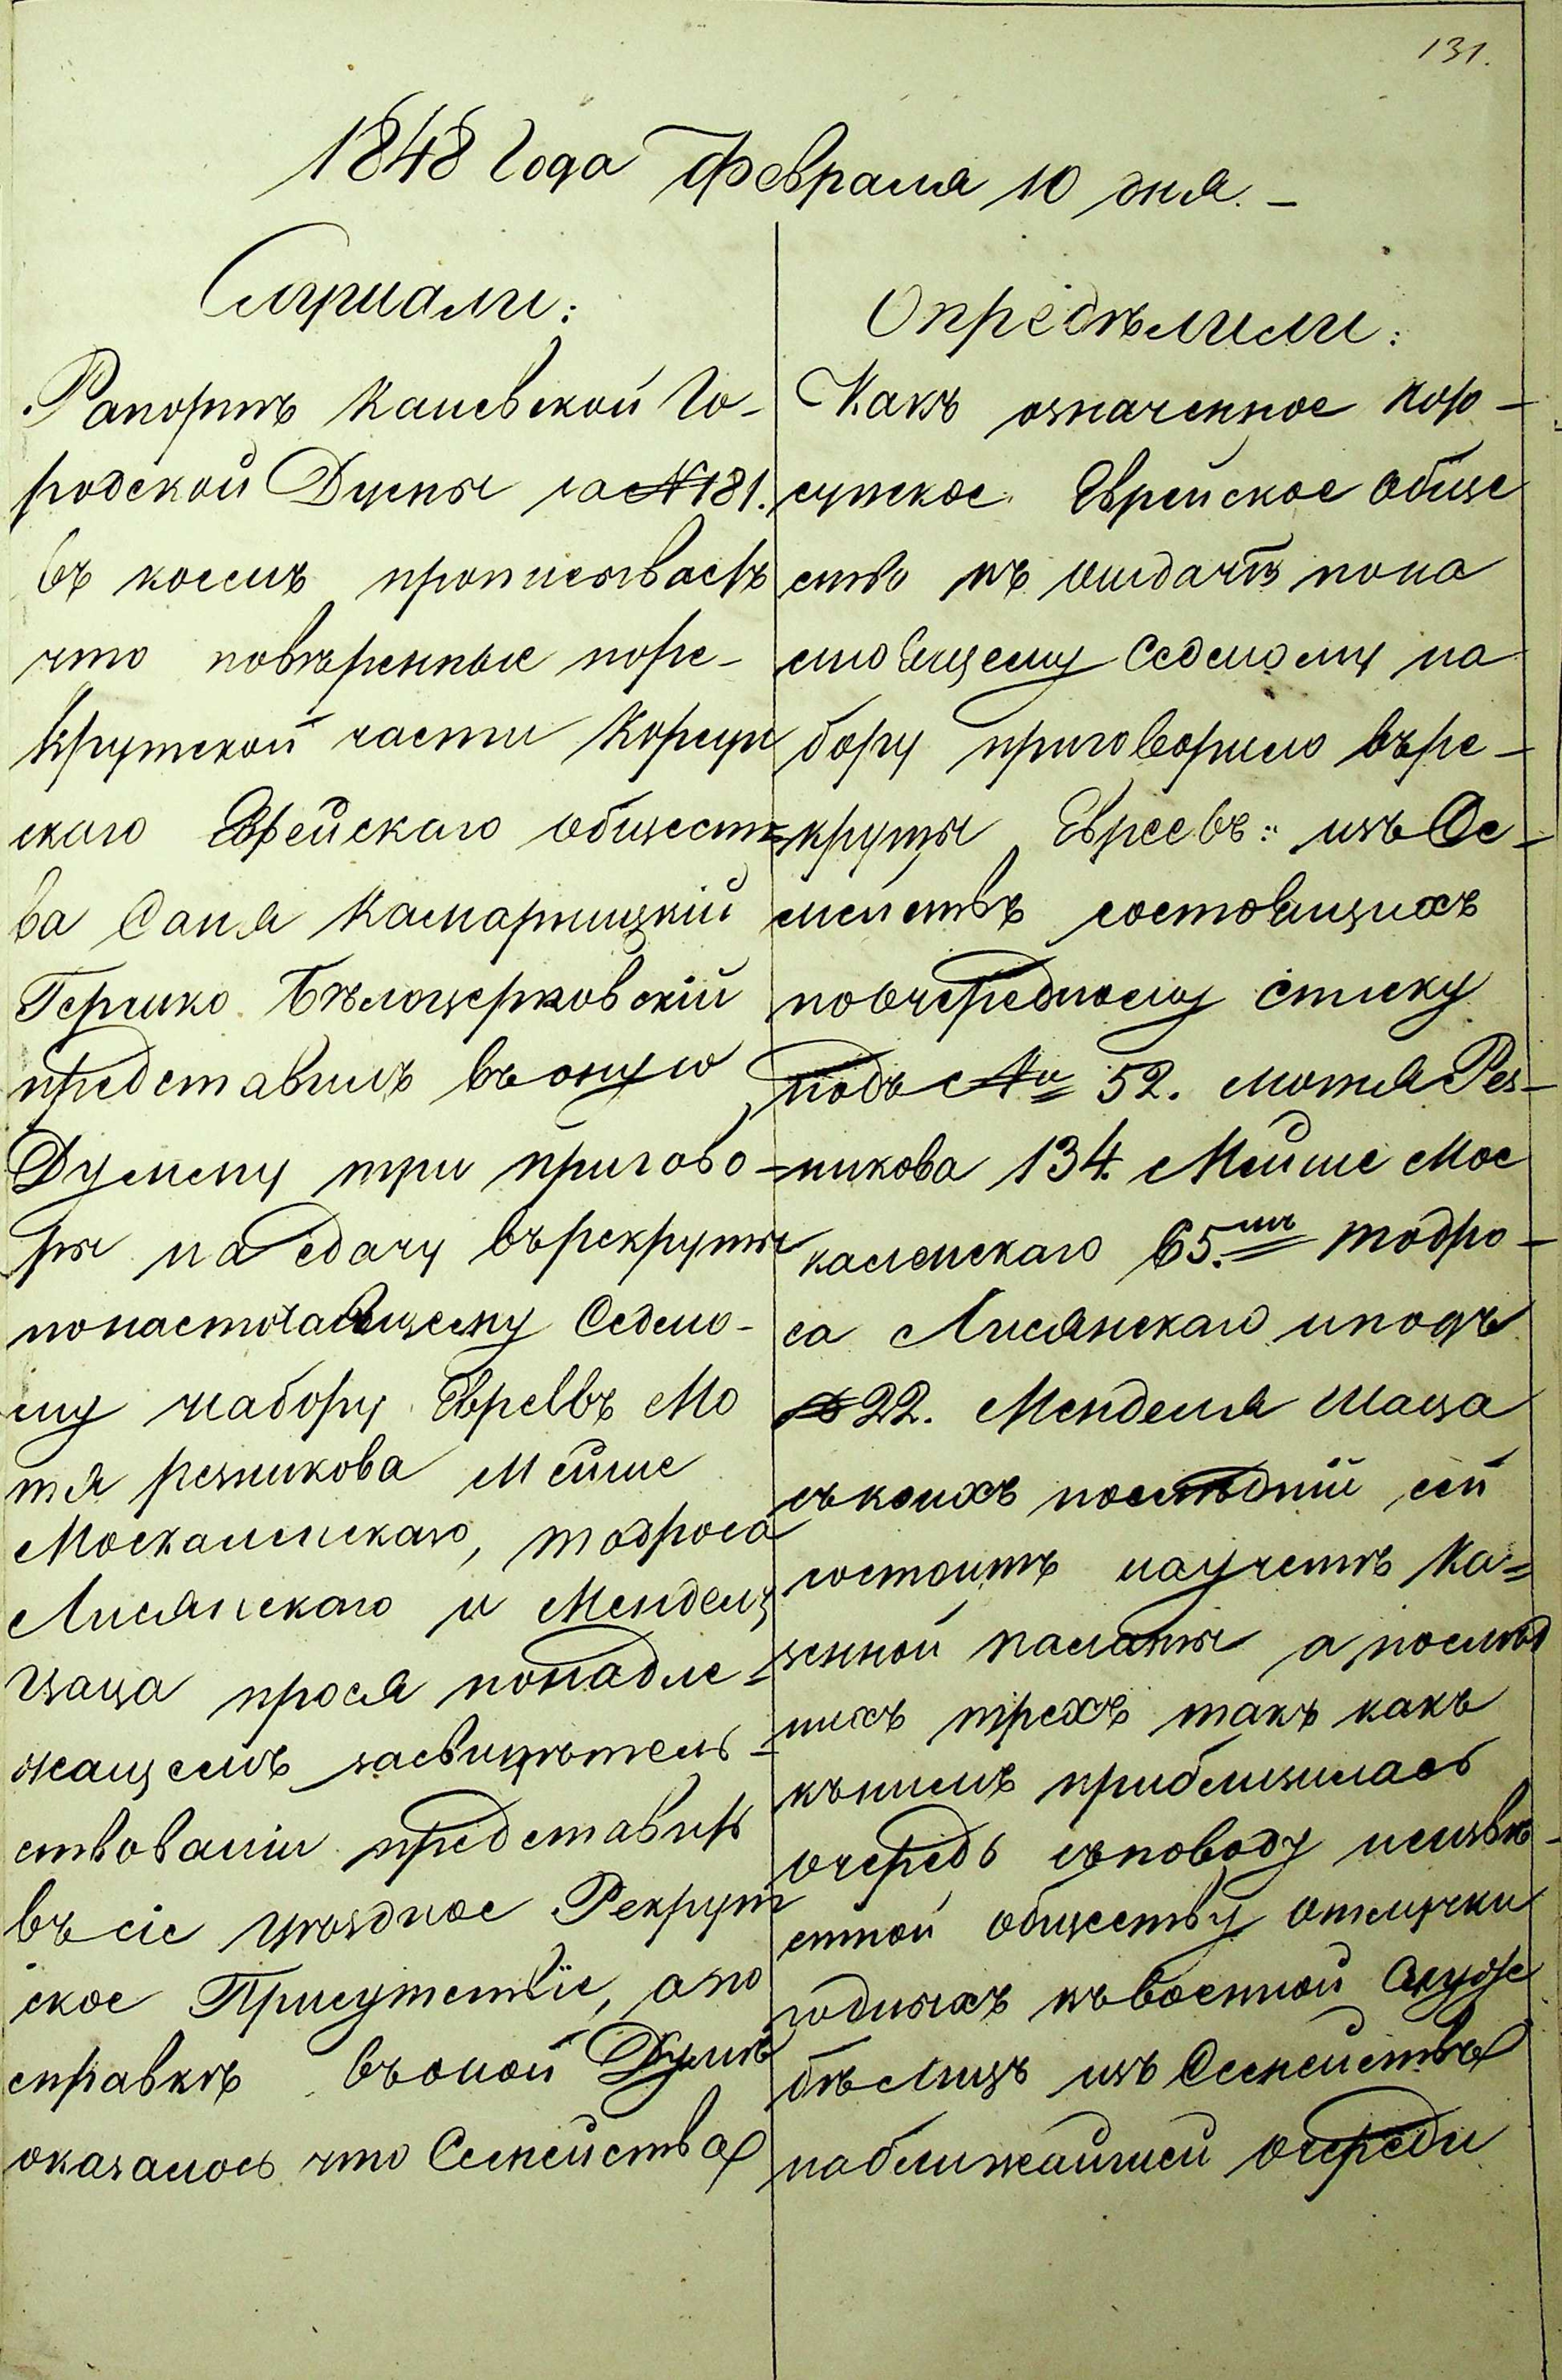 131.
1848 Года Февраля 10 дня. –
Слушали:
Рапортъ Каневской Го-
родской Думы за №181.
въ коемъ прописываетъ
что повѣренные поре-
крутской части Корсун
скаго Еврейскаго общест=
ва Саня Камарницкій
Гершко Бѣлоцерковскій
представилъ въ оную
Думему три пригово-
ры на сдачу въ рекруты
понастоящему Седмо-
му набору Евреевъ Мо
тя резникова Мейше
Москаленскаго, тодроса
Лисянскаго и Менделя
Шаца прося понадле-
жащемъ засвидѣтель-
ствованіи представить
въ сіе уѣздное Рекрут
ское Присутствіе, а по
справкѣ въ оной Думѣ
оказалось что Семейства
Опредѣлили:
Какъ означенное Кор-
сунское Еврейское обще
ство къ отдачѣ пона
стоящему Седмому на
бору приговорило въ ре-
круты Евреевъ: изъ Се-
мействъ состоящихъ
поочередному списку
подъ № 52. мотя Рез-
никова 134. Мейше Мос
каленскаго 65.мъ тодро-
са Лисянскаго иподъ
№ 22. Менделя Шаца
съ коихъ послѣдній сей
состоитъ научетѣ Ка=
зенной палаты а послѣд
нихъ трехъ такъ какъ
къ нимъ приблизилась
очередь споводу неизвѣ-
стной обществу отлучки
годныхъ къ военной Служ
бѣ Лицъ изъ Семейства
наближайшей очереди